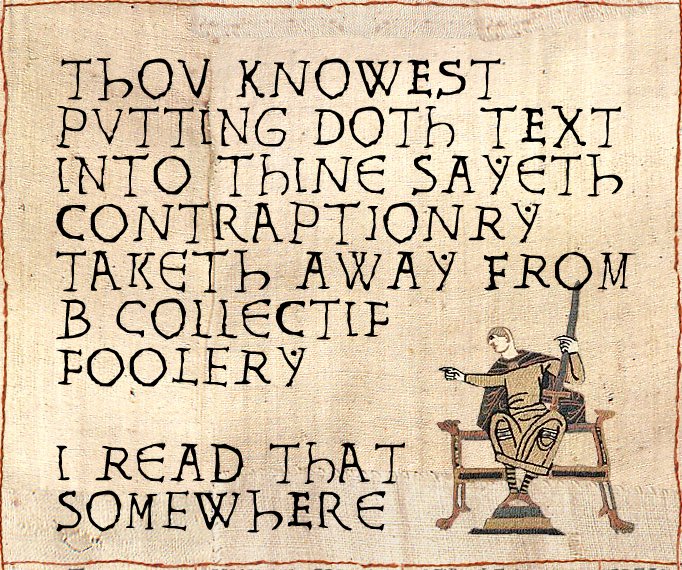 THOU KNOWEST
PUTTING DOTH TEXT
INTO THINE SAYETH
CONTRAPTIONRY
TAKETH AWAY FROM
B COLLECTIF
FOOLERY
I READ THAT
SOMEWHERE